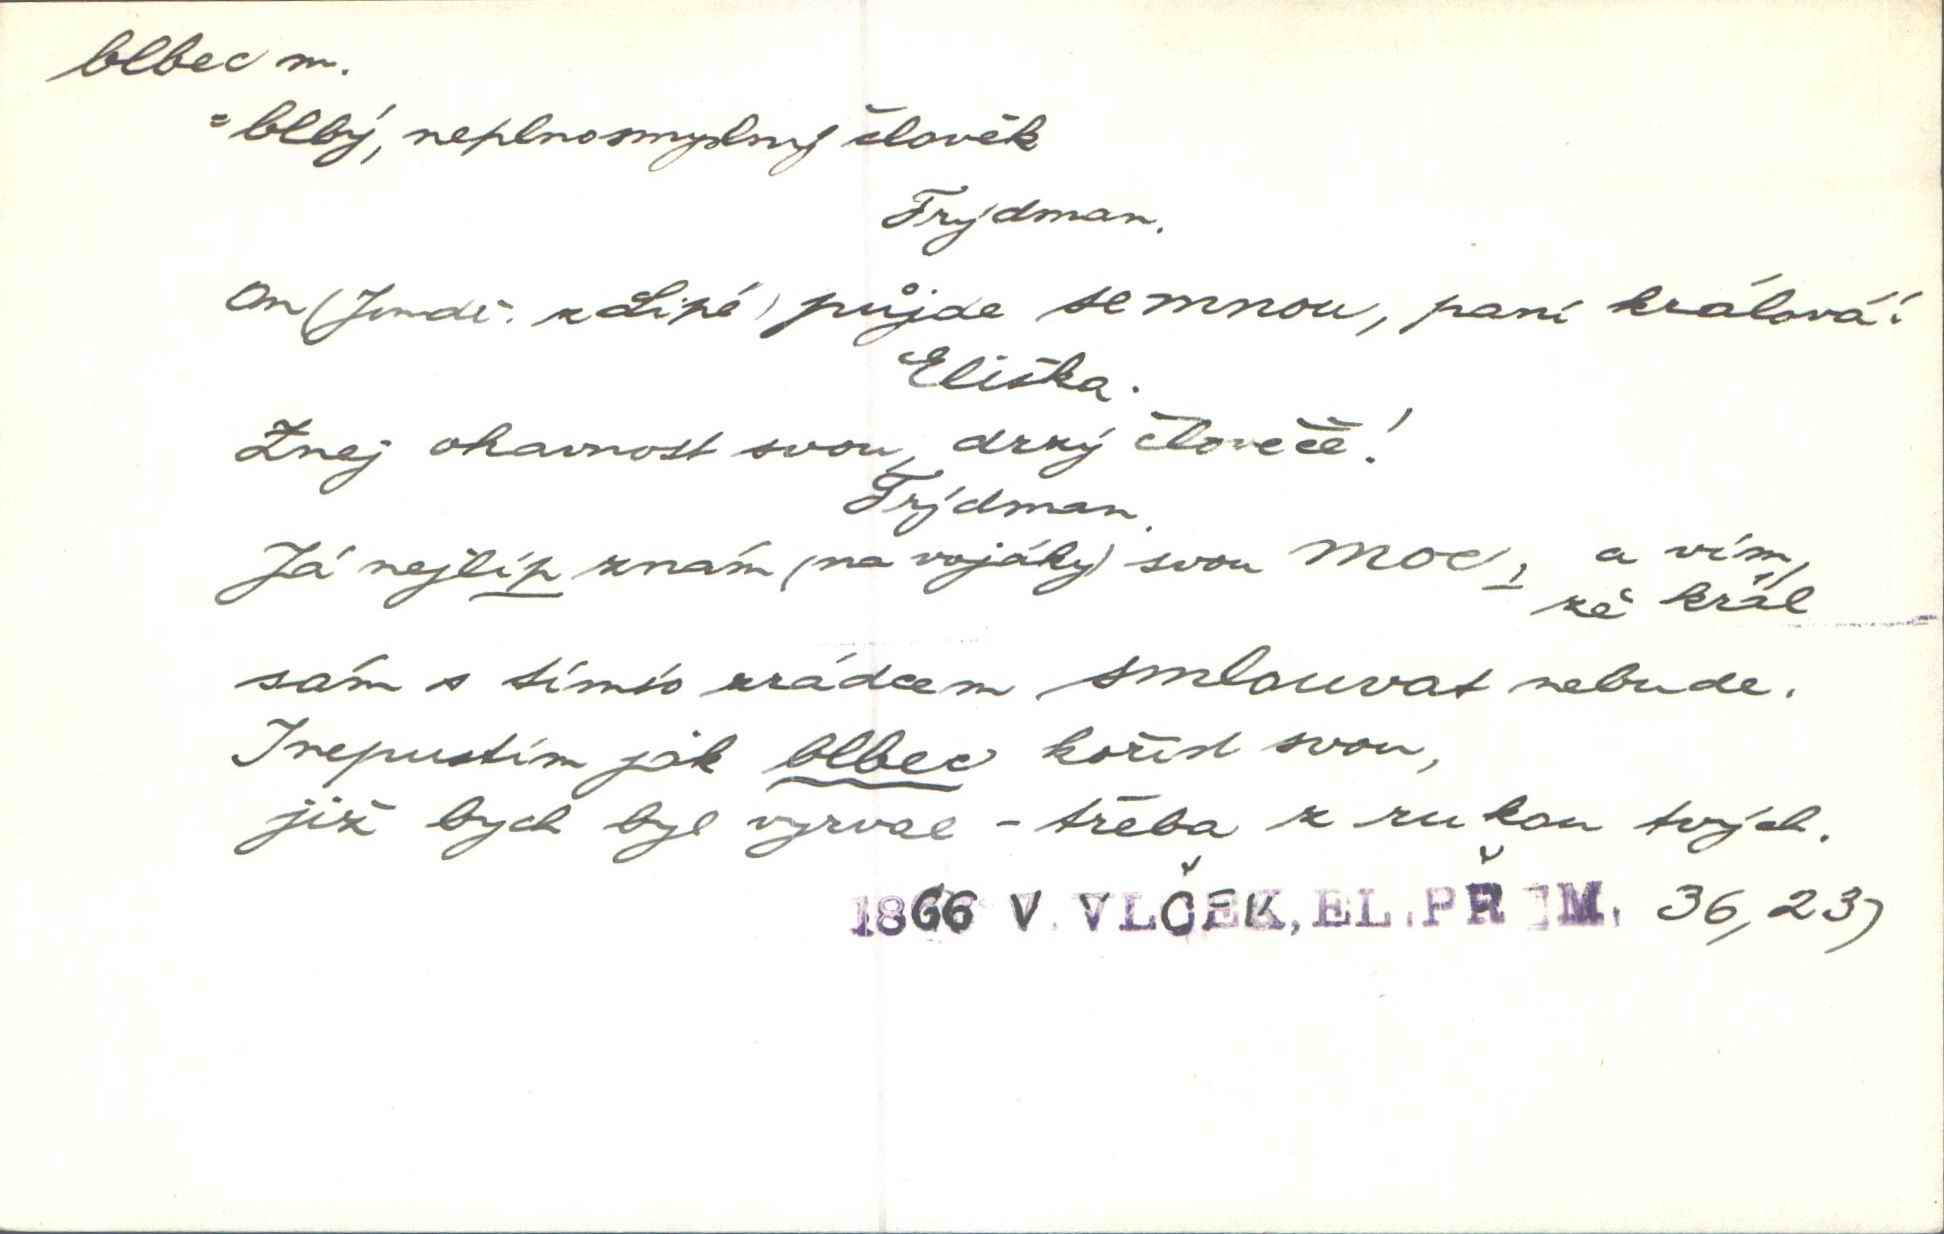 blbec m.
= blbý, neplnosmyslný člověk
Frýdman.
On (Jindř. z Lipé) půjde semnou, paní králová!
Eliška.
Znej ohavnost svou, drzý člověče!
Frýdman.
Já nejlíp znám (na vojáky) svou moc, a vím,
že král
sám s tímto zrádcem smlouvat nebude.
I nepustím jak blbec kořist svou,
již bych byl vyrval – třeba z rukou tvých.
1866 V. VLČEK, EL. PŘEM. 36, 23)